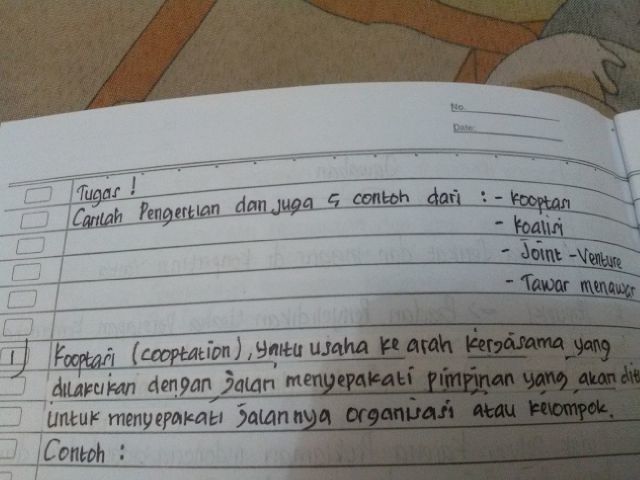 No.
Date:
Tugas !
Carilah Pengertian dan juga 5 contoh dari : - Kooptasi
- Koalisi
- Joint - Venture
- Tawar menawar
1) Kooptasi (cooptation), yaitu usaha ke arah kerjasama yang
dilakukan dengan jalan menyepakati pimpinan yang akan
untuk menyepakati jalannya organisasi atau kelompok.
Contoh :